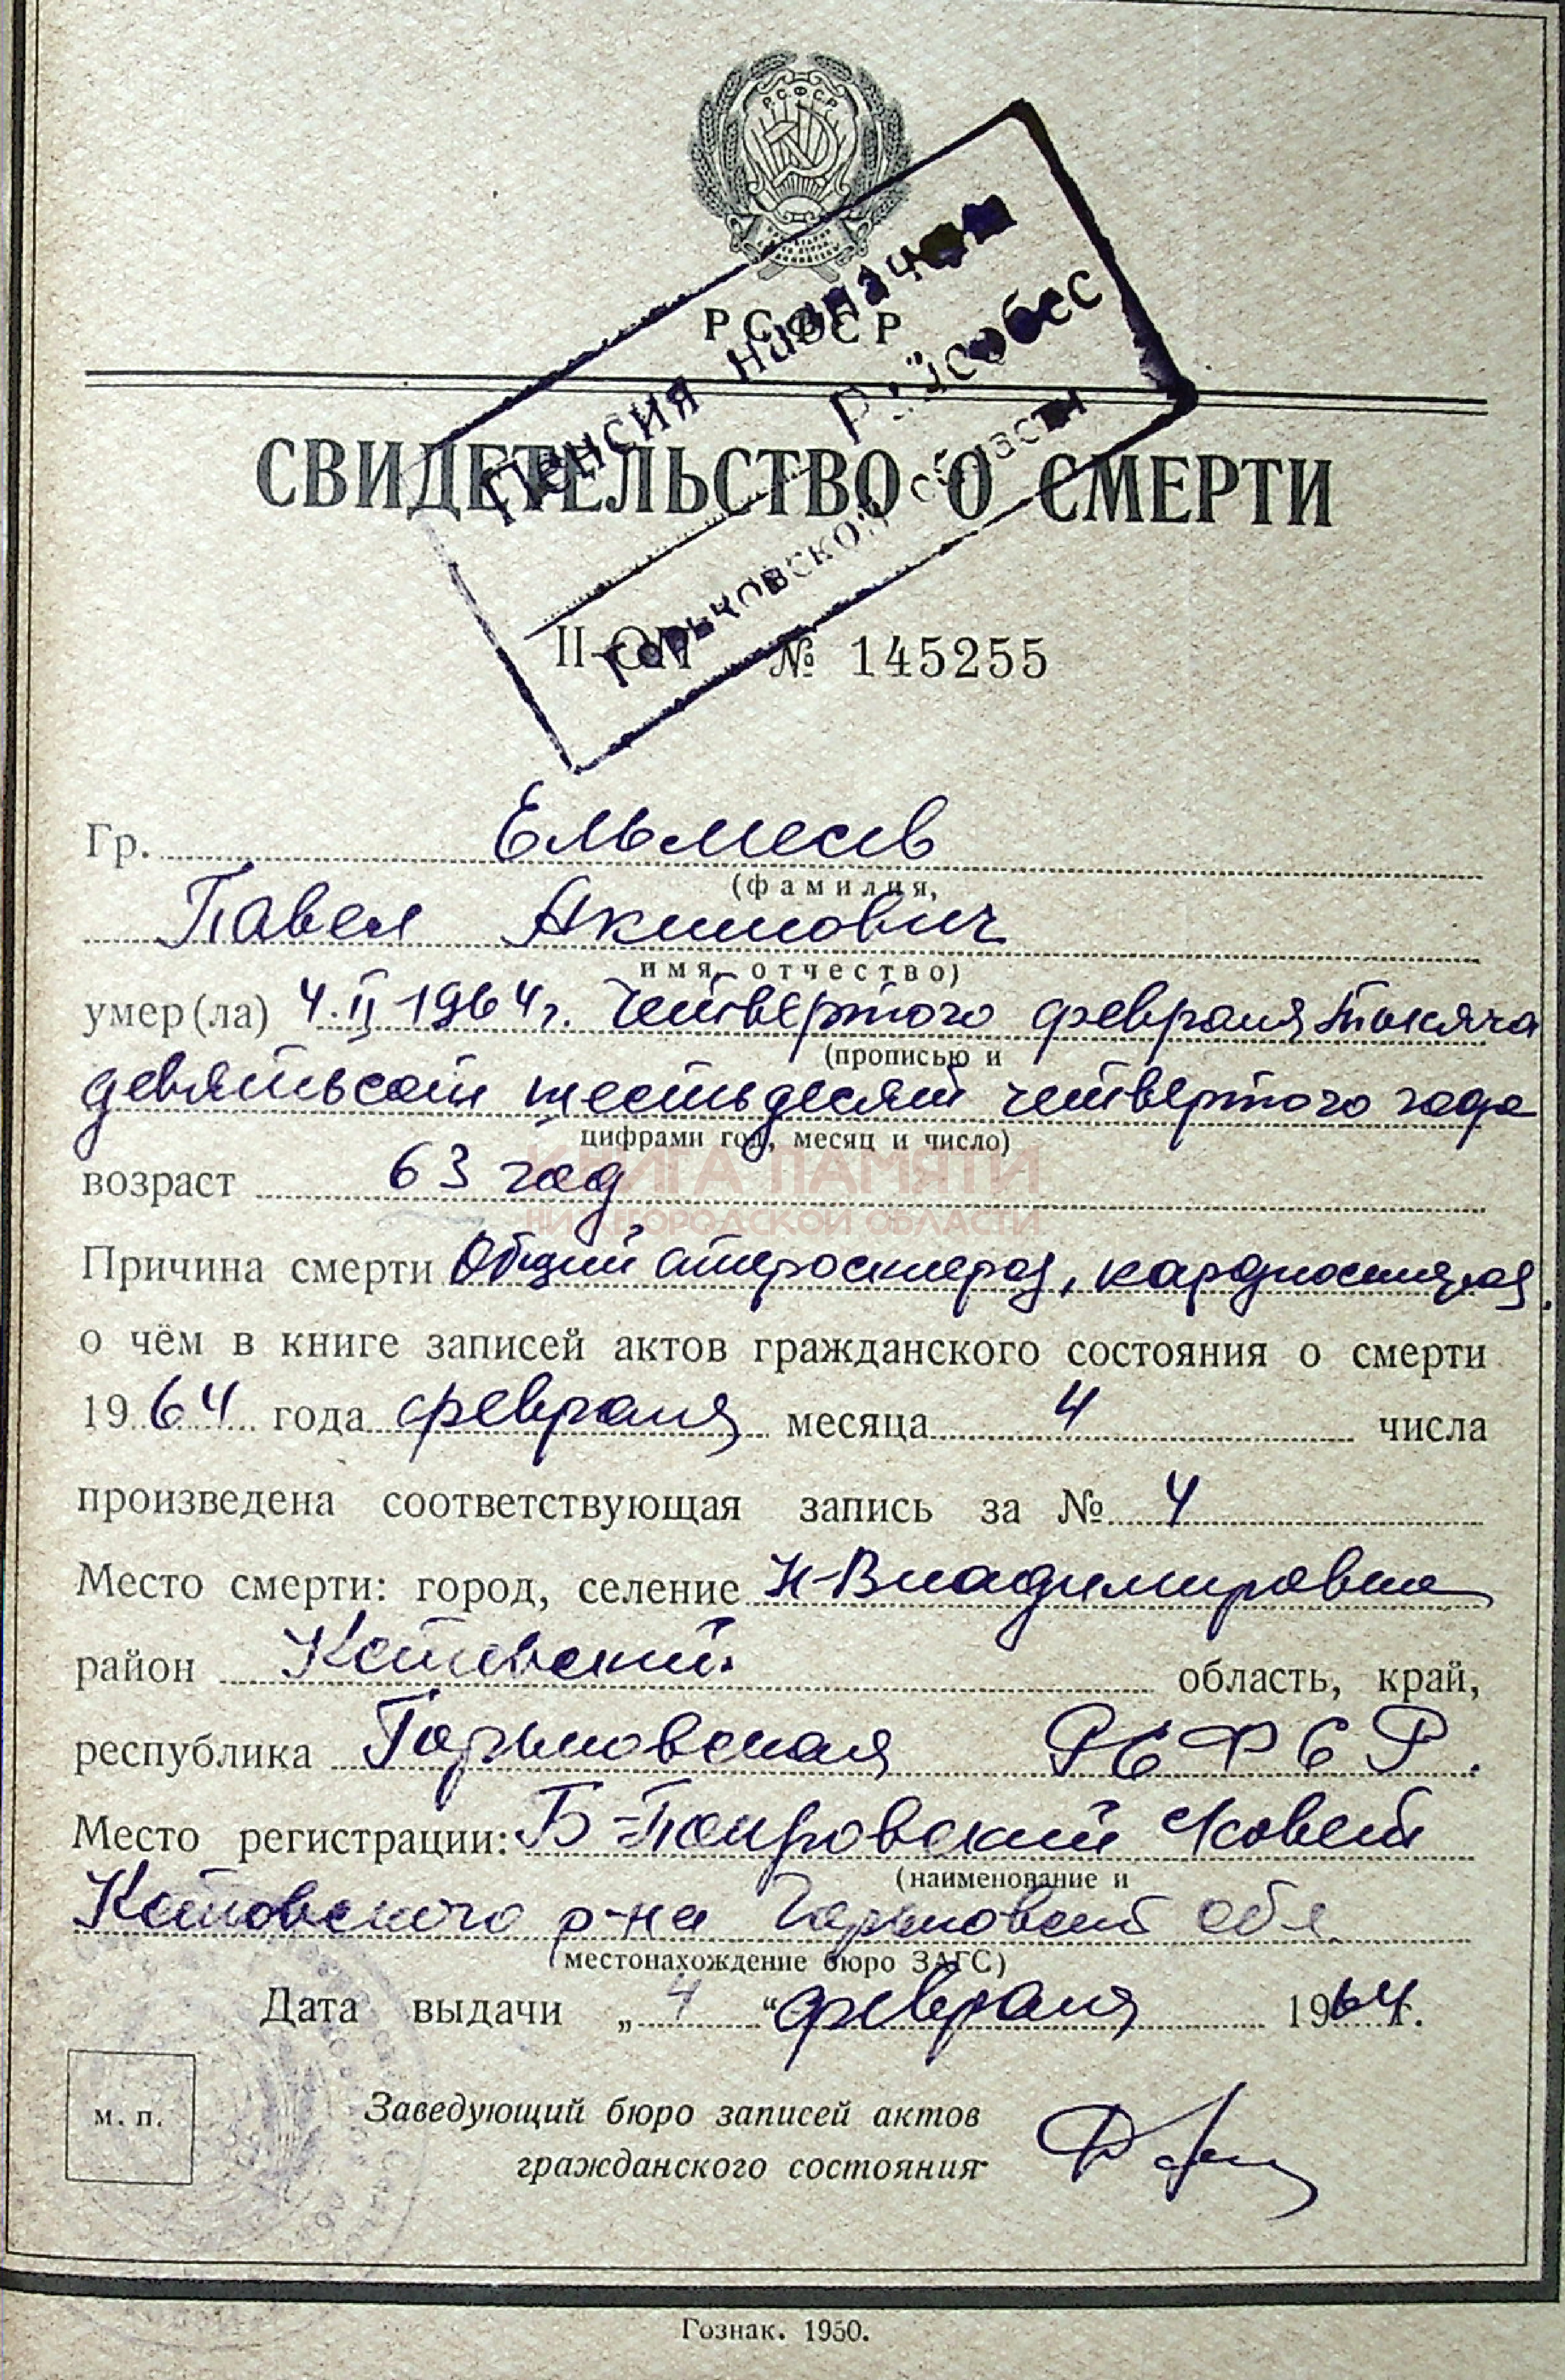 РСФСР
РСФСР
Пенсия назначена
Райсобес
Горьковской области
СВИДЕТЕЛЬСТВО О СМЕРТИ
II-ОП № 145255
Гр. Ельмеев
(фамилия,
Павел Акимович
имя, отчество)
умер(ла) 4.II 1964г. Четвертого февраля тысяча
(прописью и
девятьсот шестьдесят четвертого года
цифрами год, месяц и число)
возраст 63 год
КНИГА ПАМЯТИ
НИЖЕГОРОДСКОЙ ОБЛАСТИ
Причина смерти Общий атеросклероз, кардиосклероз.
о чём в книге записей актов гражданского состояния о смерти
1964 года февраля месяца 4 числа
произведена соответствующая запись за № 4
Место смерти: город, селение Н-Владимировка
район Кстовский область, край,
республика Горьковская РСФСР.
Место регистрации: Б-Покровский совет
(наименование и
Кстовского р-на Горьковской обл
местонахождение бюро ЗАГС)
Дата выдачи „4“ февраля 1964г.
м. п.
Заведующий бюро записей актов
гражданского состояния
Гознак. 1950.